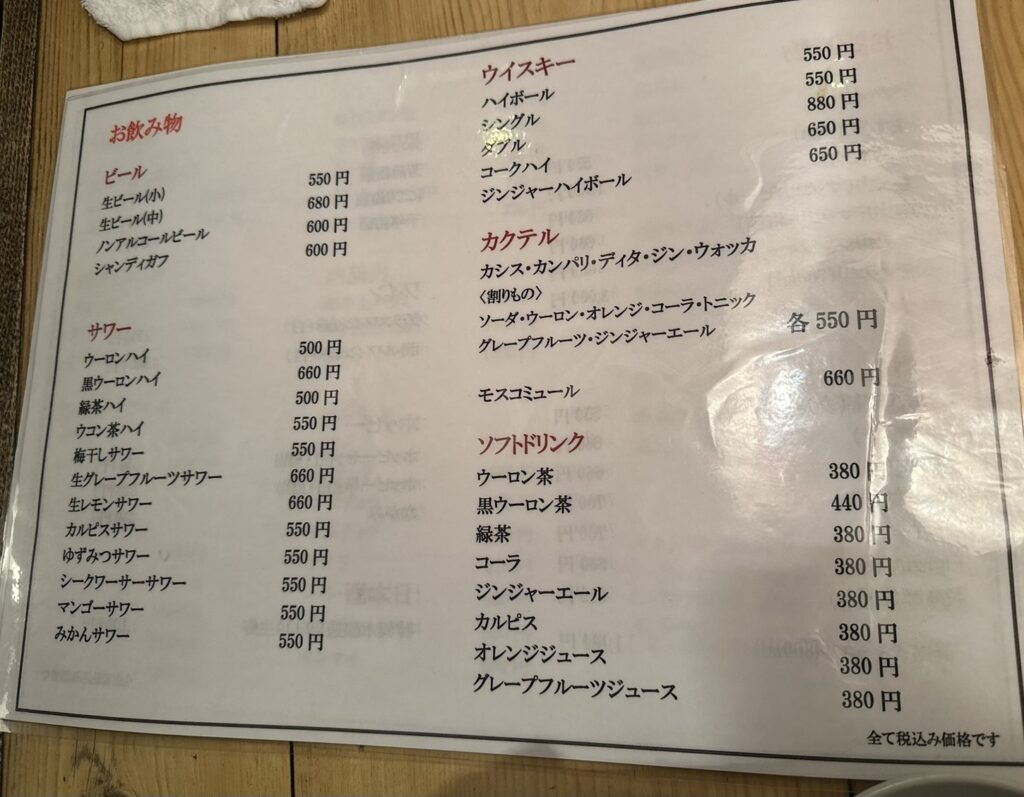 お飲み物
ビール
生ビール(小) 550 円
生ビール(中) 680 円
ノンアルコールビール 600 円
シャンディガフ 600 円
サワー
ウーロンハイ 500 円
黒ウーロンハイ 660 円
緑茶ハイ 500 円
ウコン茶ハイ 550 円
梅干しサワー 550 円
生グレープフルーツサワー 660 円
生レモンサワー 660 円
カルピスサワー 550 円
ゆずみつサワー 550 円
シークワーサーサワー 550 円
マンゴーサワー 550 円
みかんサワー 550 円
ウイスキー
ハイボール 550 円
シングル 550 円
ダブル 880 円
コークハイ 650 円
ジンジャーハイボール 650 円
カクテル
カシス・カンパリ・ディタ・ジン・ウォッカ
〈割りもの〉
ソーダ・ウーロン・オレンジ・コーラ・トニック
グレープフルーツ・ジンジャーエール 各 550 円
モスコミュール 660 円
ソフトドリンク
ウーロン茶 380 円
黒ウーロン茶 440 円
緑茶 380 円
コーラ 380 円
ジンジャーエール 380 円
カルピス 380 円
オレンジジュース 380 円
グレープフルーツジュース 380 円
全て税込み価格です